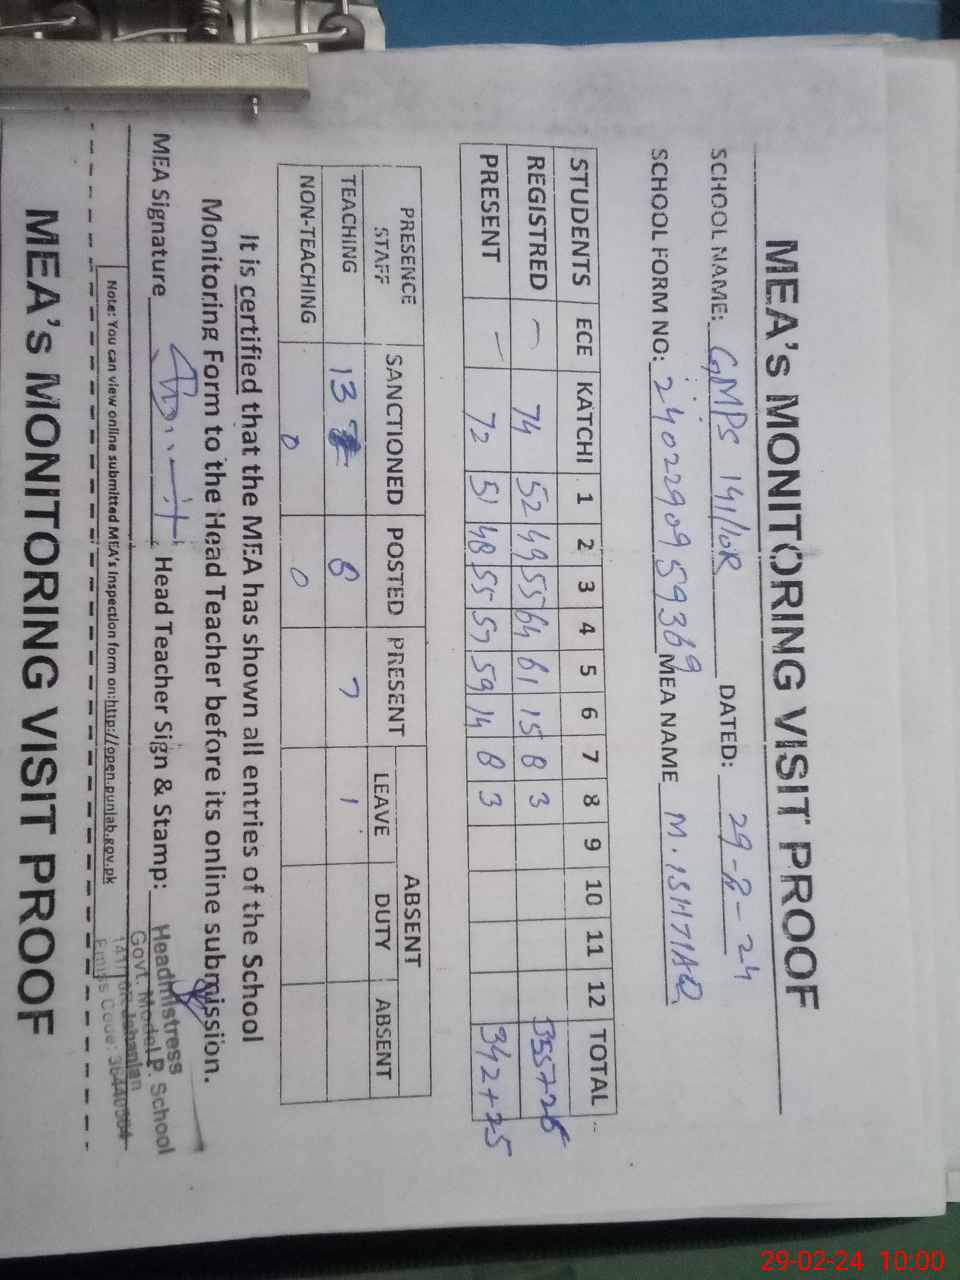 MEA's MONITORING VISIT PROOF
SCHOOL NAME: GMPS 141/10R DATED: 29-2-24
SCHOOL FORM NO: 24022909 59369 MEA NAME M. ISHTIAQ
STUDENTS ECE KATCHI 1 2 3 4 5 6 7 8 9 10 11 12 TOTAL
REGISTRED – 74 52 49 55 64 61 15 8 3 355+26
PRESENT – 72 51 48 55 57 59 14 8 3 342+25
PRESENCE STAFF SANCTIONED POSTED PRESENT ABSENT
LEAVE DUTY ABSENT
TEACHING 13 8 7 1
NON-TEACHING 0 0
It is certified that the MEA has shown all entries of the School
Monitoring Form to the Head Teacher before its online submission.
MEA Signature Head Teacher Sign & Stamp:
Headmistress
Govt. Model P. School
141/10R Jahanian
Emiss Code: 36440504
Note: You can view online submitted MEA's Inspection form on:http://open.punjab.gov.pk
MEA's MONITORING VISIT PROOF
29-02-24 10:00